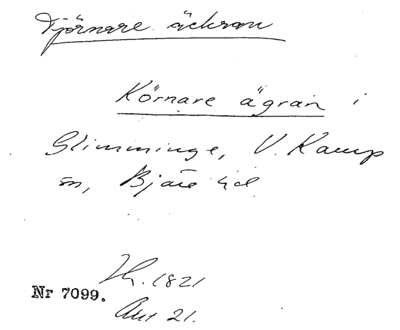 Tjörnare äckran
Körnare ägran i
Glimminge, V. Karup
sn, Bjäre hd
Nr 7099.
1821
21.